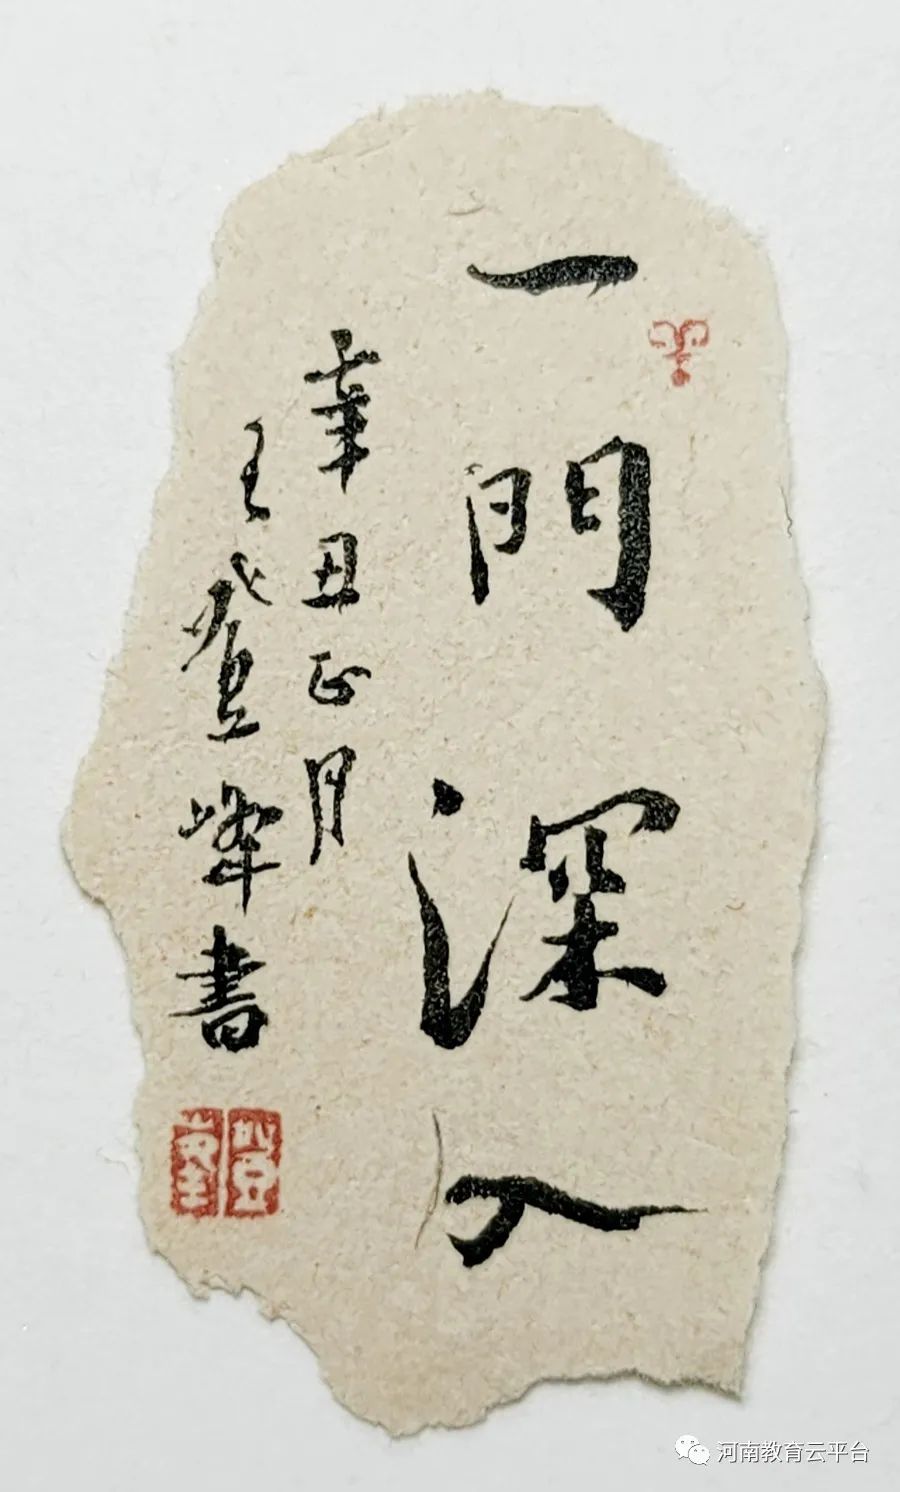 一門深入
辛丑正月
王登峰書
河南教育云平台